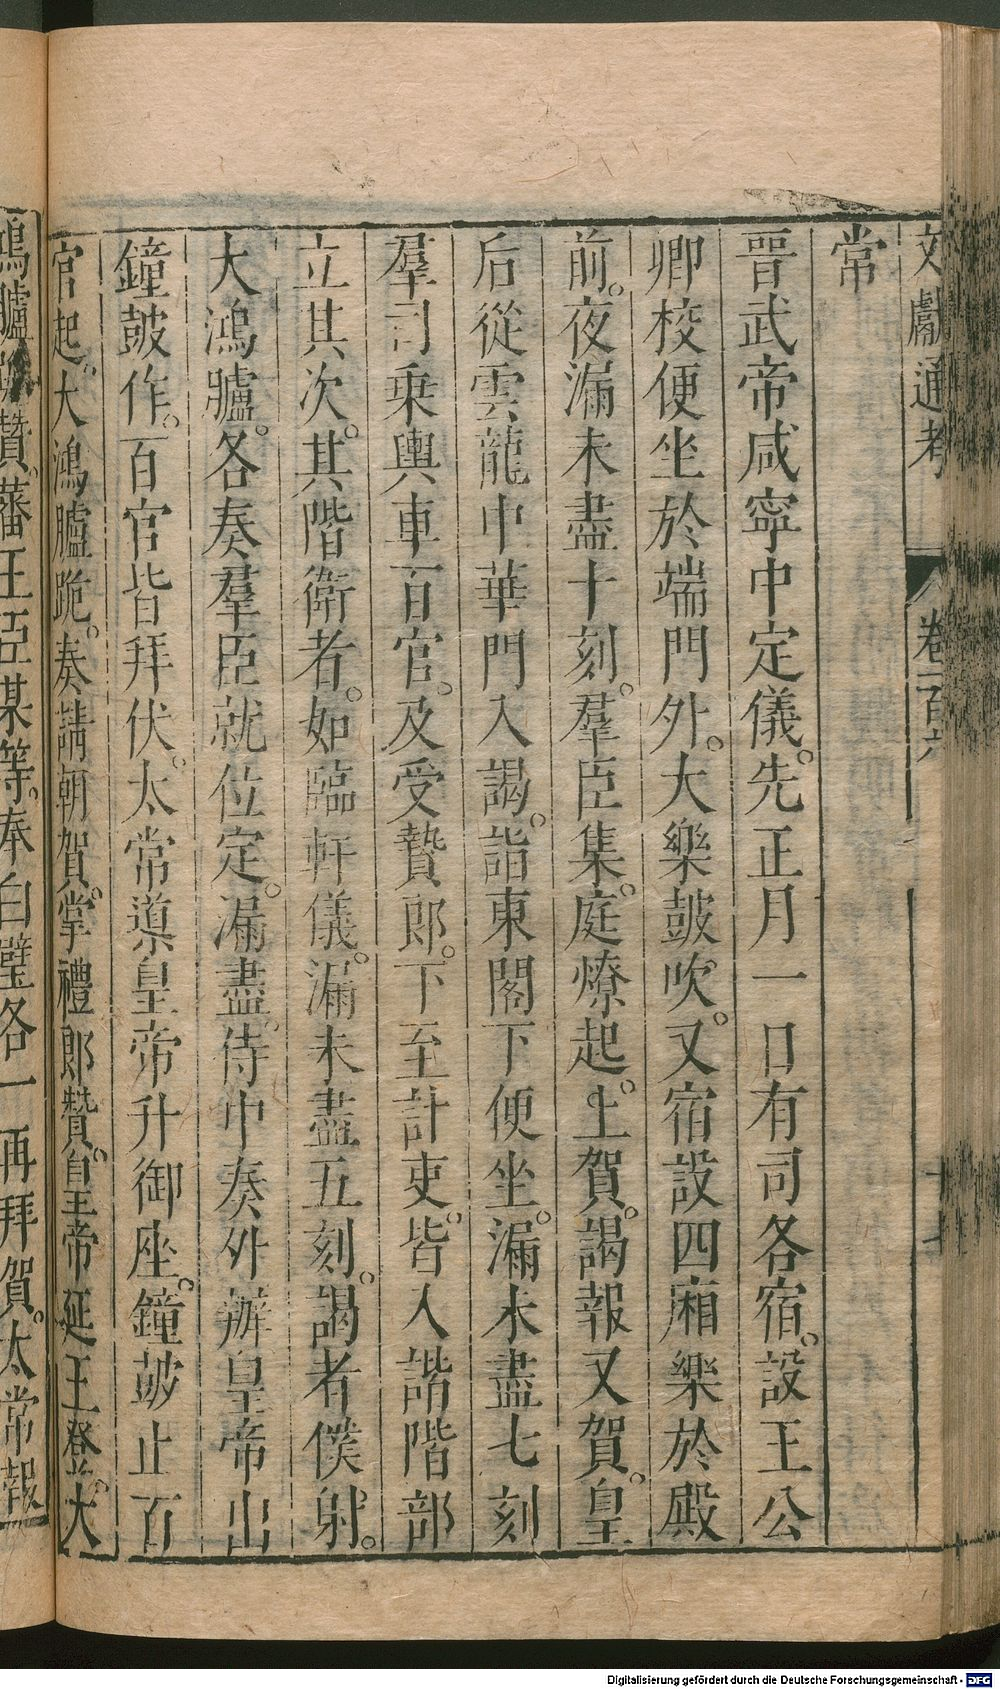 文獻通考 卷一百六
常
晋武帝咸寧中定儀。先正月一日有司各宿。設王公
卿校便坐於端門外。大樂鼓吹。又宿設四廂樂於殿
前。夜漏未盡十刻。羣臣集。庭燎起。上賀。謁報又賀。皇
后從雲龍中華門入謁。詣東閣下便坐。漏未盡七刻
羣司乗輿車百官。及受贄郎。下至計吏。皆入詣階部
立其次。其階衛者。如臨軒儀。漏未盡五刻。謁者僕射。
大鴻臚。各奏羣臣就位定。漏盡。侍中奏外辦皇帝出
鐘鼓作。百官皆拜伏。太常導皇帝升御座。鐘鼓止百
官起。大鴻臚跪。奏請朝賀。掌禮郎贊。皇帝延王登。大
鴻臚 贊。藩王臣某等。奉白璧各一再拜賀。太常報
Digitalisierung gefördert durch die Deutsche Forschungsgemeinschaft - DFG